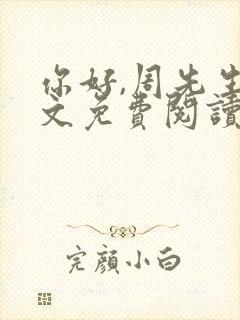 你好,周先生
文免费閱讀
完顏小白